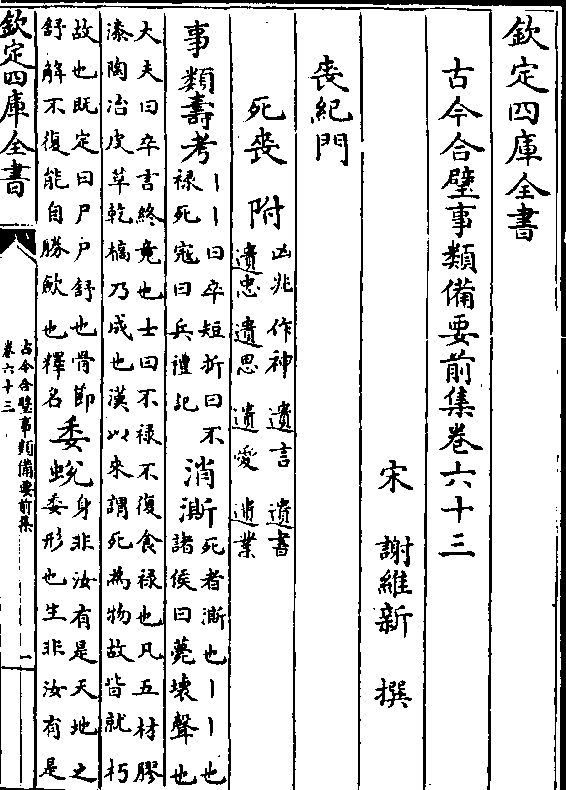 欽定四庫全書
古今合璧事類備要前集卷六十三
宋 謝維新 撰
喪紀門
死喪 附
凶兆 作神 遺言 遺書
遺忠 遺思 遺愛 遺業
事類壽考
丨丨曰卒短折曰不
祿死寇曰兵禮記
消澌
死者澌也丨丨也
諸侯曰薨壞聲也
大夫曰卒言終竟也士曰不祿不復食祿也凡五材膠
漆陶冶皮革乾槁乃成也漢以來謂死為物故皆就朽
故也既定曰尸尸舒也骨節
舒解不復能自勝斂也釋名
委蛻
身非汝有是天地之
委形也生非汝有是
欽定四庫全書
古今合璧事類備要前集
卷六十三
一